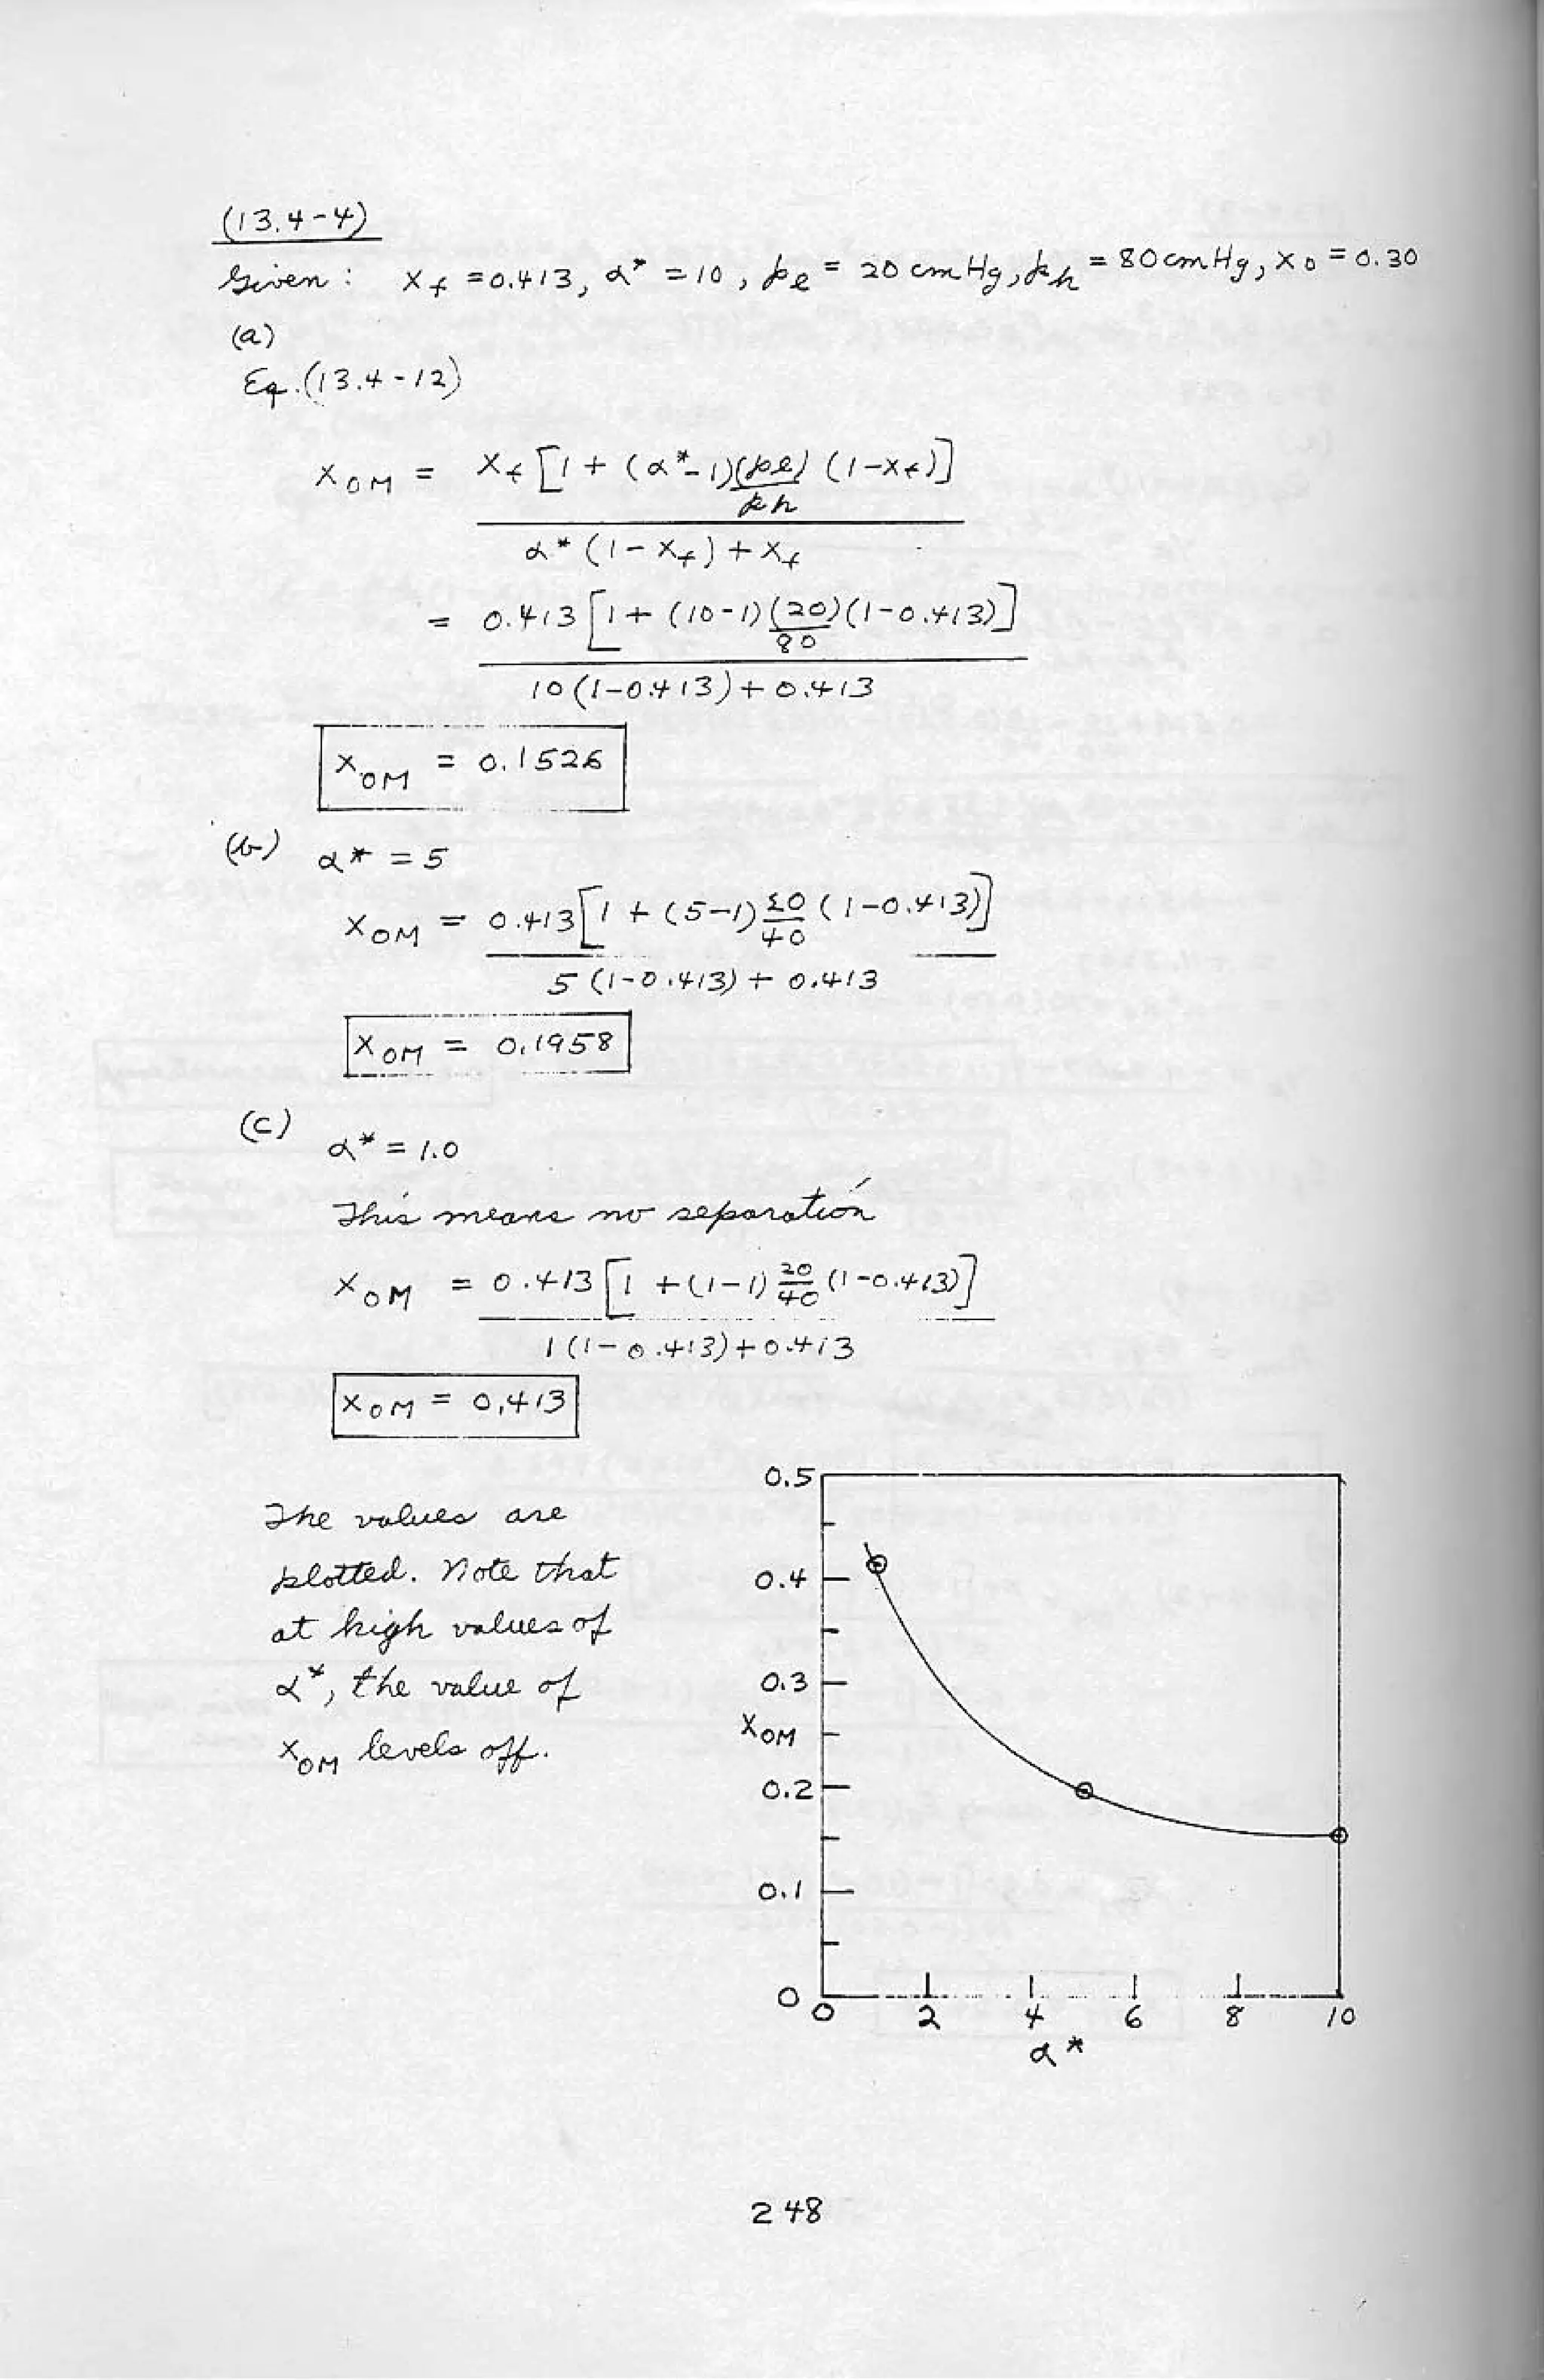 (13.4-4)
Given : x_f = 0.413, α* = 10, p_l = 20 cm Hg, p_h = 80 cm Hg, x_o = 0.30
(a)
Eq. (13.4-12)
x_OM = x_f [1 + (α* - 1)(p_l) (1 - x_f)]
p_h
α* (1 - x_f) + x_f
= 0.413 [1 + (10 - 1)(20)(1 - 0.413)]
80
10 (1 - 0.413) + 0.413
x_OM = 0.1526
(b) α* = 5
x_OM = 0.413 [1 + (5 - 1) 20 (1 - 0.413)]
40
5 (1 - 0.413) + 0.413
x_OM = 0.1958
(c)
α* = 1.0
This means no separation
x_OM = 0.413 [1 + (1 - 1) 20 (1 - 0.413)]
40
1 (1 - 0.413) + 0.413
x_OM = 0.413
The values are
plotted. Note that
at high values of
α*, the value of
x_OM levels off.
0.5
0.4
0.3
x_OM
0.2
0.1
0
0 2 4 6 8 10
α*
248